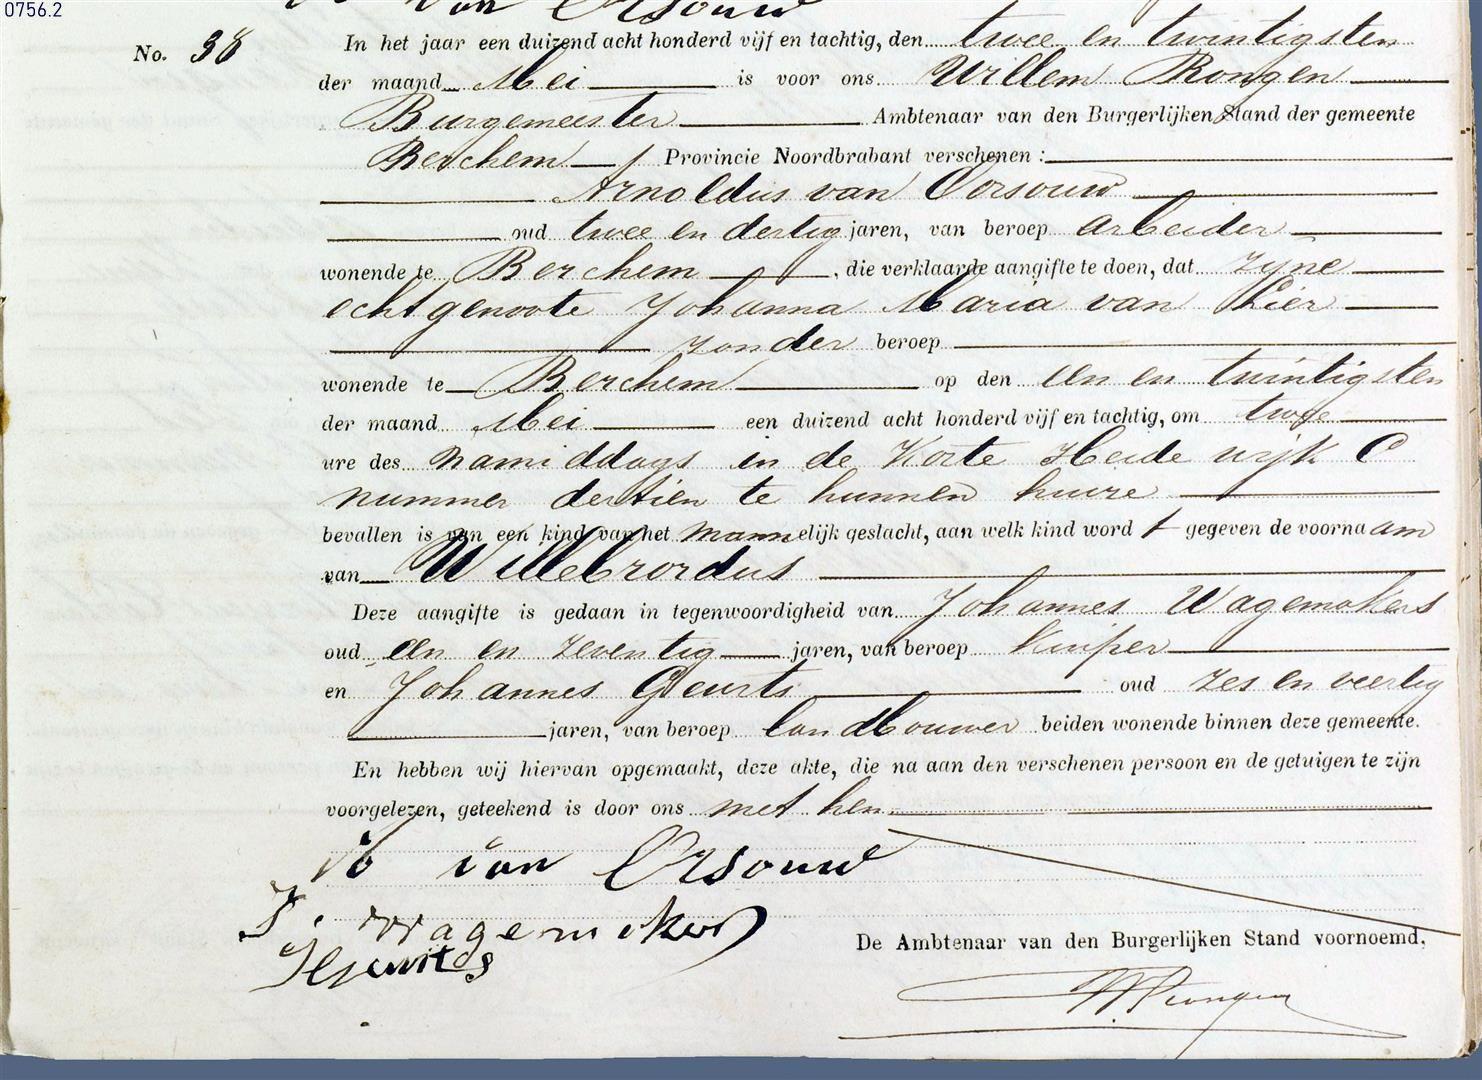 0756.2
van Orsouw
No. 38 In het jaar een duizend acht honderd vijf en tachtig, den twee en twintigsten
der maand Mei is voor ons Willem Rongen
Burgemeester Ambtenaar van den Burgerlijken Stand der gemeente
Berchem Provincie Noordbrabant verschenen:
Arnoldus van Oorsouw
oud twee en dertig jaren, van beroep arbeider
wonende te Berchem, die verklaarde aangifte te doen, dat zijne
echtgenoote Johanna Maria van Lier
zonder beroep
wonende te Berchem op den een en twintigsten
der maand Mei een duizend acht honderd vijf en tachtig, om twee
ure des namiddags in de Korte Heide wijk C
nummer dertien te hunnen huize
bevallen is van een kind van het mannelijk geslacht, aan welk kind word t gegeven de voornaam
van Willebrordus
Deze aangifte is gedaan in tegenwoordigheid van Johannes Wagemakers
oud een en zeventig jaren, van beroep kuiper
en Johannes Geurts oud zes en veertig
jaren, van beroep landbouwer beiden wonende binnen deze gemeente.
En hebben wij hiervan opgemaakt, deze akte, die na aan den verschenen persoon en de getuigen te zijn
voorgelezen, geteekend is door ons met hen.
van Orsouw
J wagemakers
De Ambtenaar van den Burgerlijken Stand voornoemd,
J Geurts
WRongen